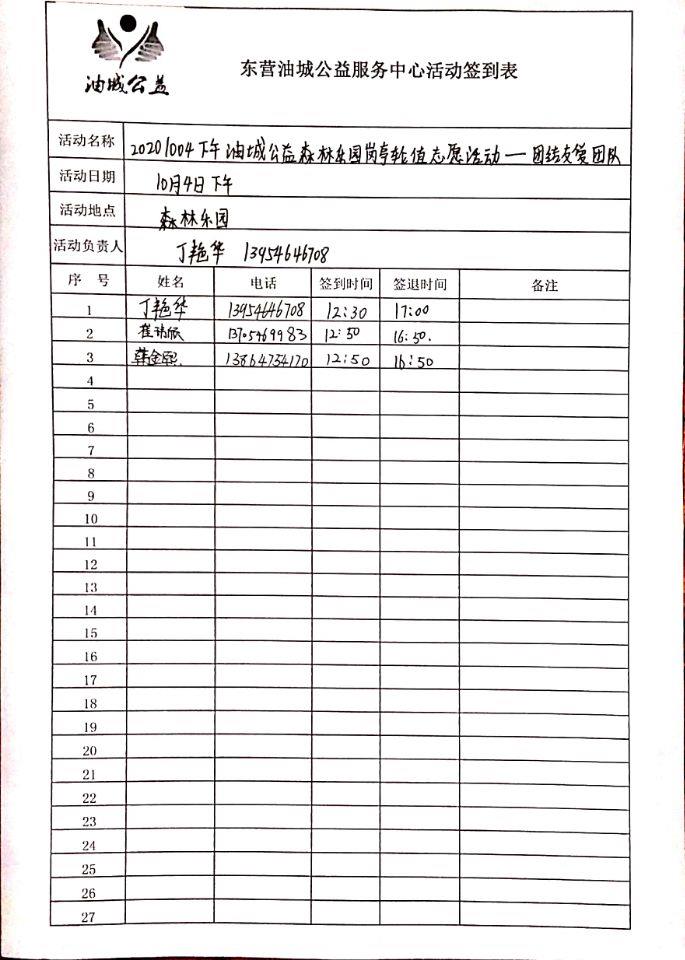 油城公益
东营油城公益服务中心活动签到表
活动名称 20201004下午油城公益森林乐园岗亭轮值志愿活动一团结友爱团队
活动日期 10月4日下午
活动地点 森林乐园
活动负责人 丁艳华 13954646708
序 号 姓名 电话 签到时间 签退时间 备注
1 丁艳华 13954646708 12:30 17:00
2 13705469983 12:50 16:50.
3 韩金熙. 13864734170 12:50 16:50
4
5
6
7
8
9
10
11
12
13
14
15
16
17
18
19
20
21
22
23
24
25
26
27